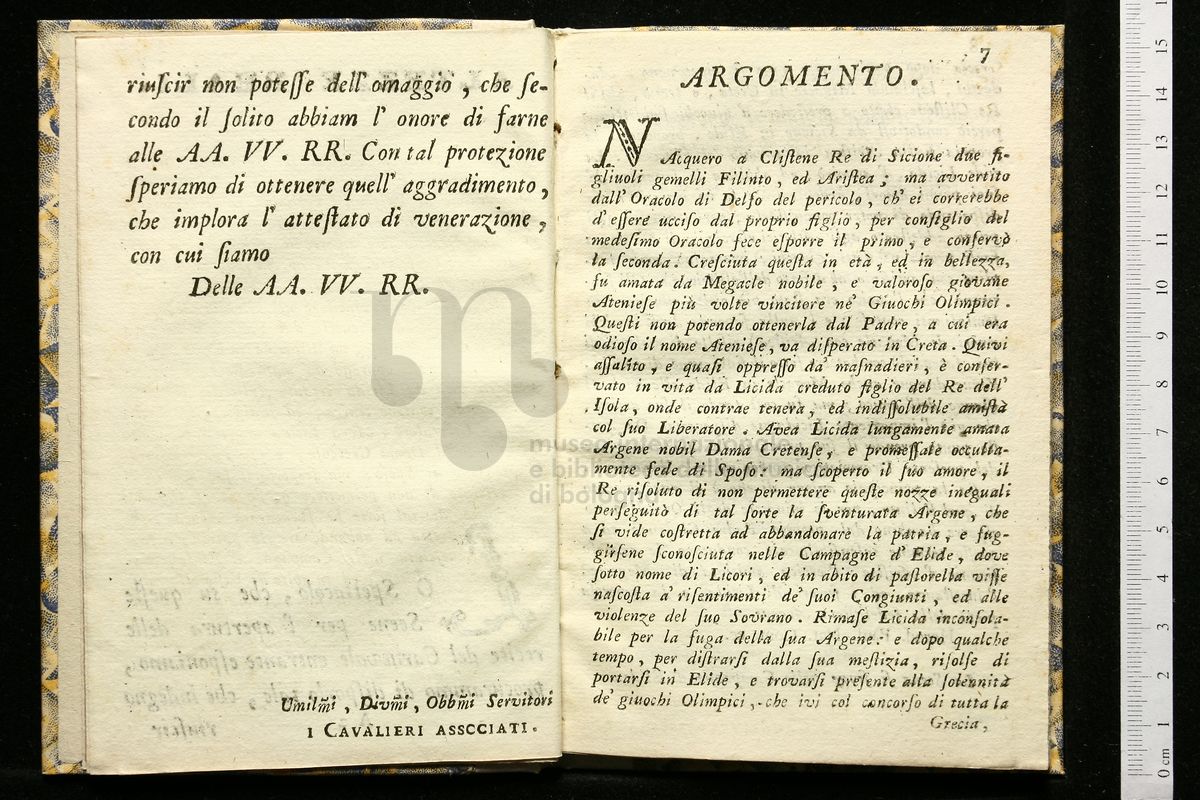 riuſcir non poteſſe dell' omaggio, che ſe-
condo il ſolito abbiam l' onore di farne
alle AA. VV. RR. Con tal protezione
ſperiamo di ottenere quell' aggradimento,
che implora l' atteſtato di venerazione,
con cui ſiamo
Delle AA. VV. RR.
Umilm̃i, Divm̃i, Obbm̃i Servitori
I CAVALIERI ASSCCIATI.
7
ARGOMENTO.
NAcquero a Cliſtene Re di Sicione due fi-
gliuoli gemelli Filinto, ed Ariſtea; ma avvertito
dall' Oracolo di Delfo del pericolo, ch' ei correrebbe
d' eſſere ucciſo dal proprio figlio, per conſiglio del
medeſimo Oracolo fece eſporre il primo, e conſervò
la ſeconda. Creſciuta queſta in età, ed in bellezza,
fu amata da Megacle nobile, e valoroſo giovane
Atenieſe più volte vincitore ne' Giuochi Olimpici.
Queſti non potendo ottenerla dal Padre, a cui era
odioſo il nome Ateniеſe, va diſperato in Creta. Quivi
aſſalito, e quaſi oppreſſo da' maſnadieri, è conſer-
vato in vita da Licida creduto figlio del Re dell'
Iſola, onde contrae tenera, ed indiſſolubile amiſtà
col ſuo Liberatore. Avea Licida lungamente amata
Argene nobil Dama Cretenſe, e promeſſale occulta-
mente fede di Spoſo: ma ſcoperto il ſuo amore, il
Re riſoluto di non permettere queſte nozze ineguali
perſeguitò di tal ſorte la ſventurata Argene, che
ſi vide coſtretta ad abbandonare la patria, e fug-
girſene ſconoſciuta nelle Campagne d' Elide, dove
ſotto nome di Licori, ed in abito di paſtorella viſſe
naſcoſta a' riſentimenti de' ſuoi Congiunti, ed alle
violenze del ſuo Sovrano. Rimaſe Licida inconſola-
bile per la fuga della ſua Argene: e dopo qualche
tempo, per diſtrarſi dalla ſua meſtizia, riſolſe di
portarſi in Elide, e trovarſi preſente alla ſolennità
de' giuochi Olimpici, che ivi col concorſo di tutta la
Grecia,
museo internazionale
e biblioteca della musica
di bologna
0 cm 1 2 3 4 5 6 7 8 9 10 11 12 13 14 15